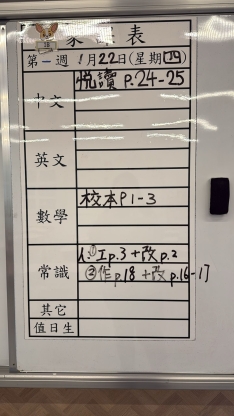 家課表
第一週 1月22日(星期四)
中文
悅讀 P.24-25
英文
數學
校本P1-3
常識
1.①工p.3+改p.2
②作p.18+改p.16-17
其它
值日生